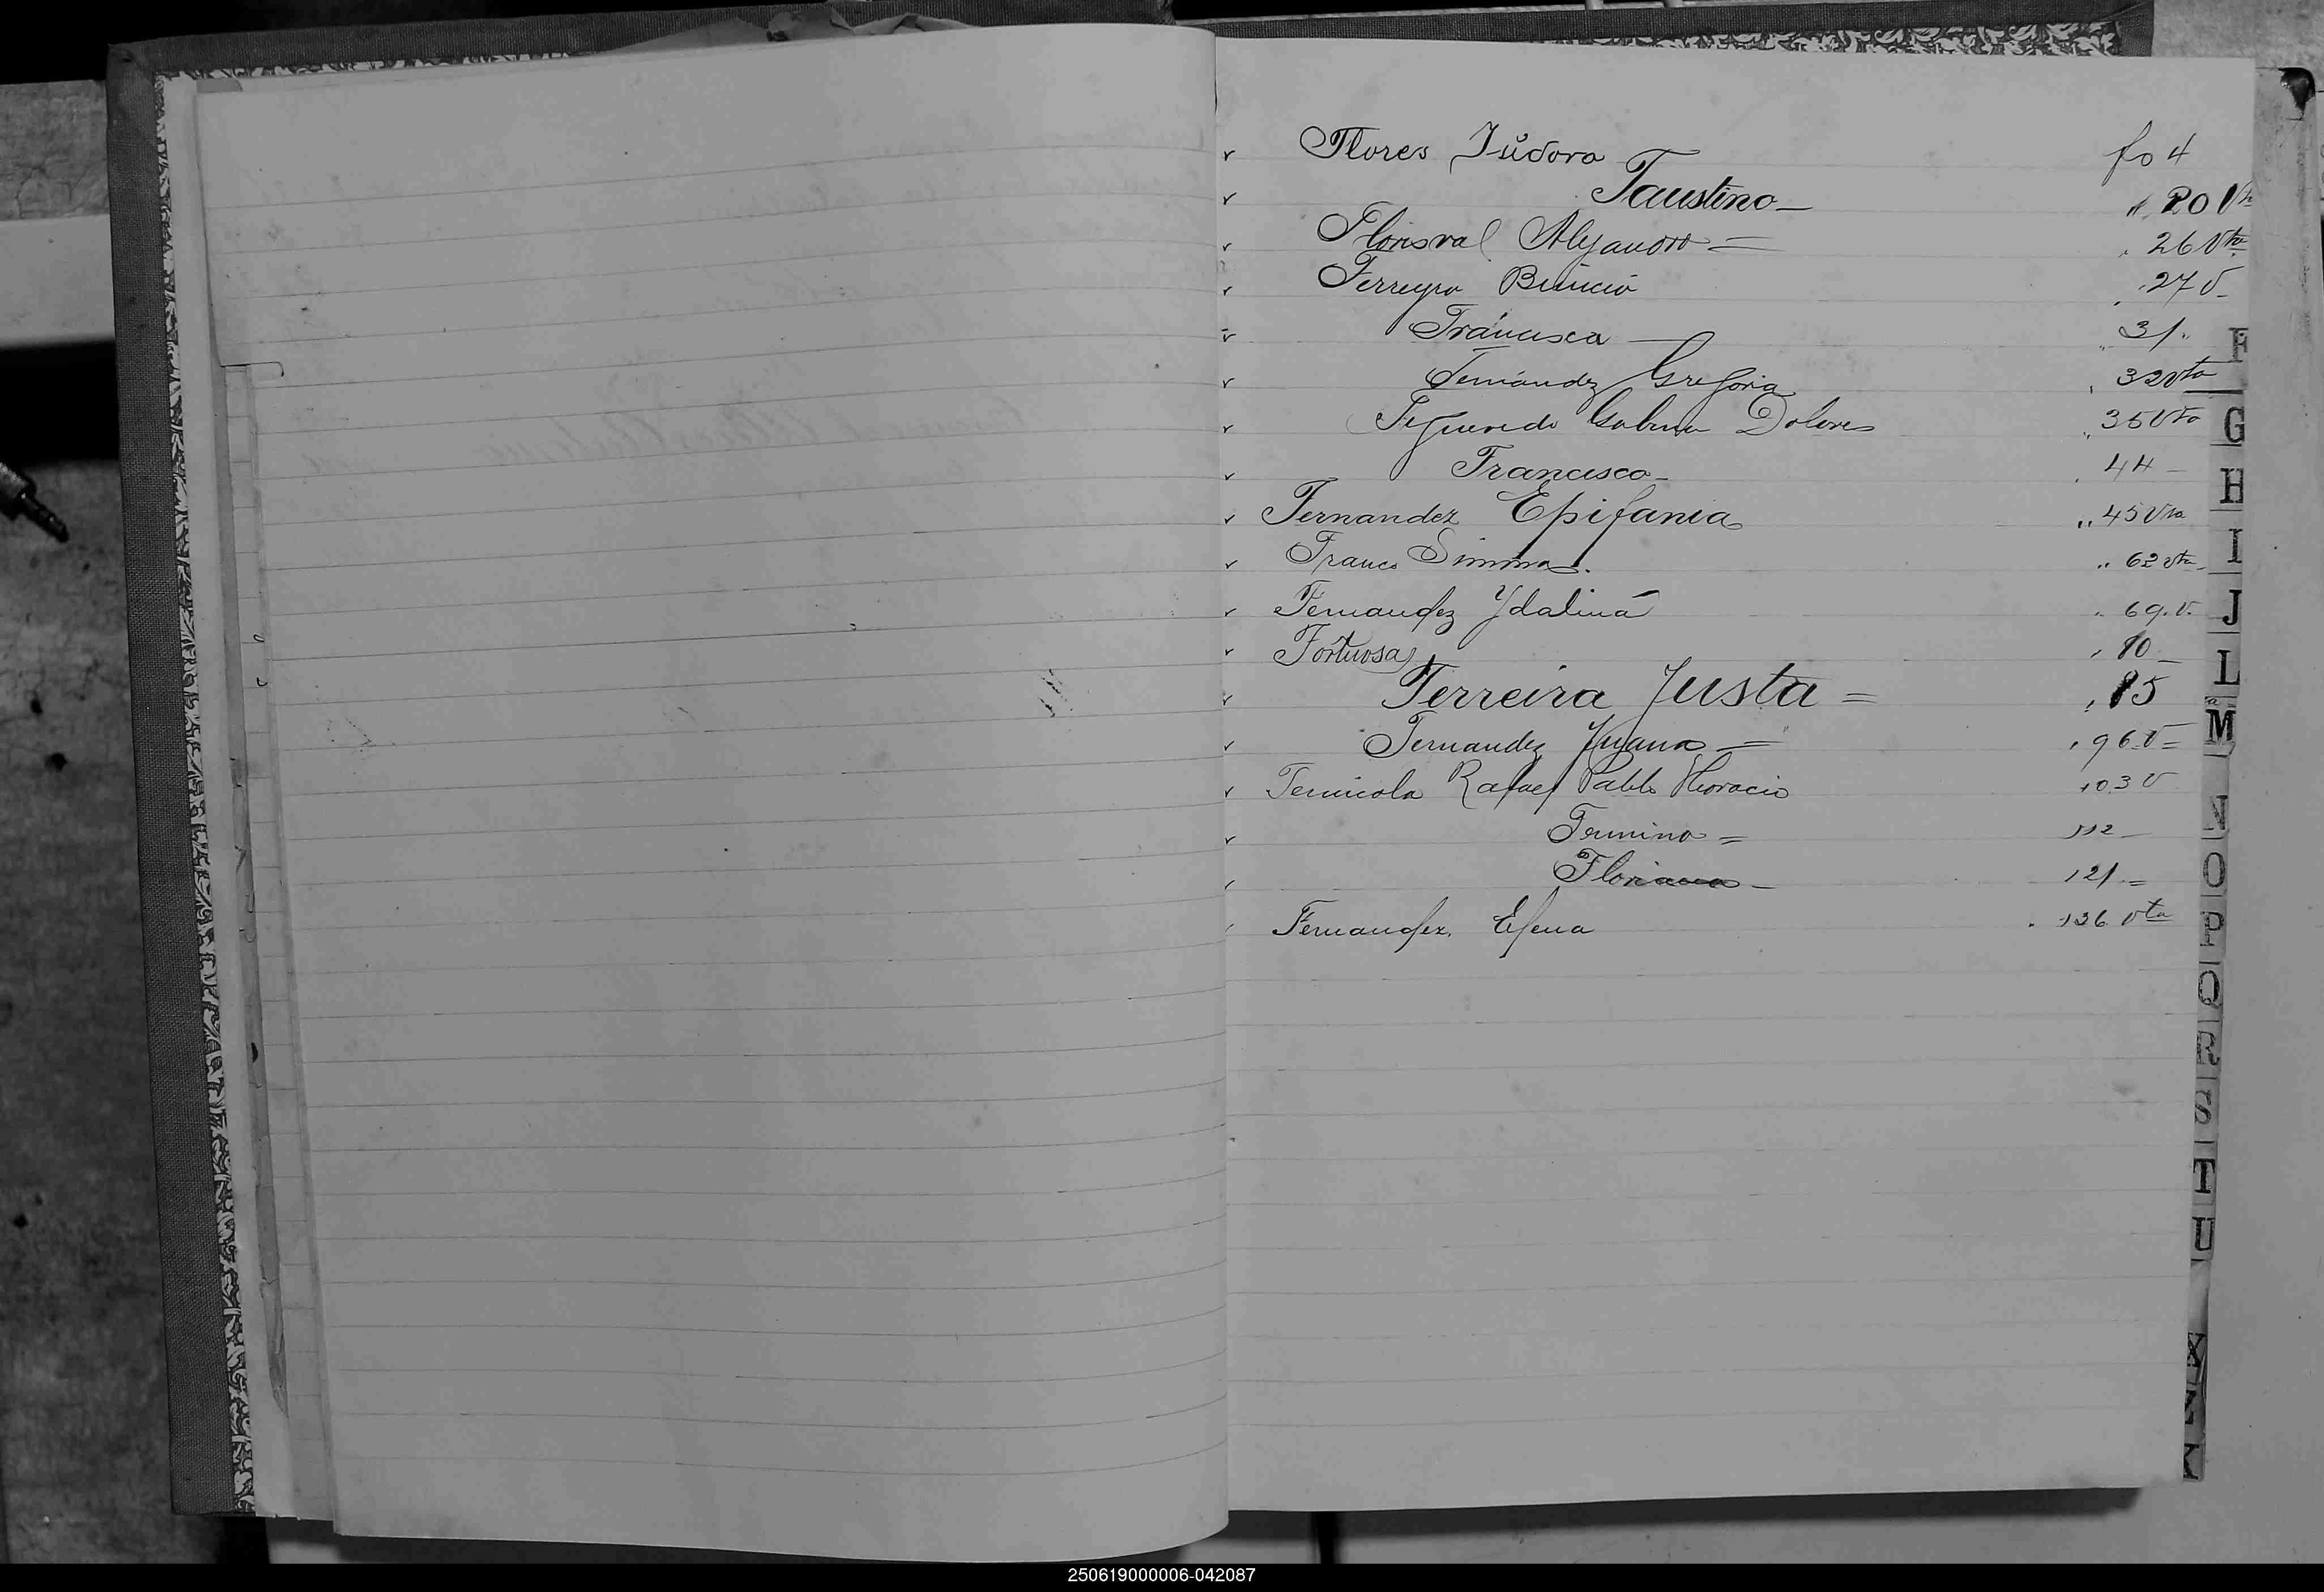 Flores Isidora fo 4
Faustino — " 20 Vta
Florisval Alejandro = " 26 Vta
Ferreyra Benicia " 27 V -
Francisca — " 31 "
Fernández Gregoria " 32 vta
Figueredo Gabina Dolores " 35 Vta
Francisco - " 44 -
Fernandez Epifania " 45 Vta
Franco " 62 vta -
Fernandez Ydalina " 69. V.
Fortuosa " 80 -
Ferreira Justa = " 85
Fernandez Juana = " 96 V =
Rafael Pablo Horacio 103 V
Fermina = 112 -
Floriana - 121 =
Fernandez. Elena " 136 Vta
F
G
H
I
J
L
M
N
O
P
Q
R
S
T
U
X
Z
K
250619000006-042087